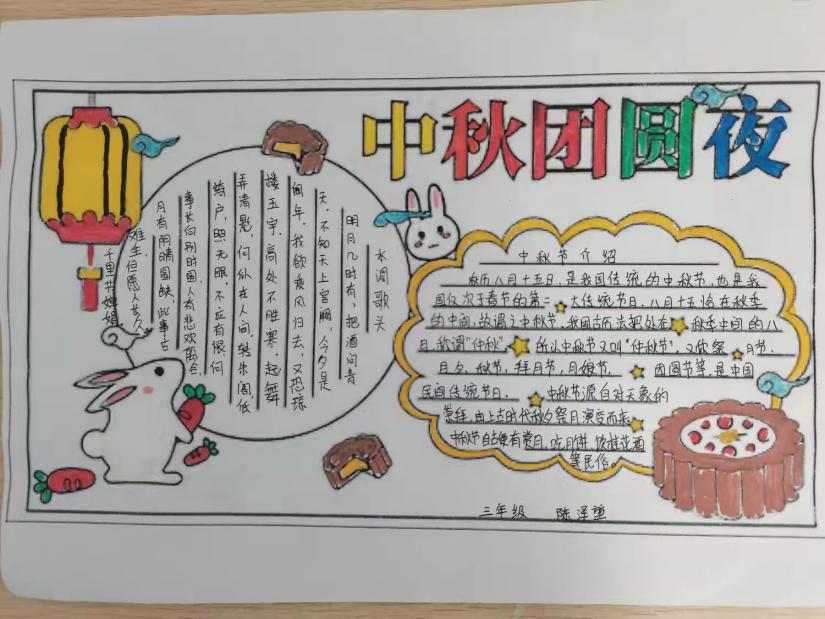 中秋团圆夜
水调歌头
明月几时有,把酒问青
天,不知天上宫阙,今夕是
何年,我欲乘风归去,又恐琼
楼玉宇,高处不胜寒,起舞
弄清影,何似在人间,转朱阁,低
绮户,照无眠,不应有恨,何
事长向别时圆,人有悲欢离合,
月有阴晴圆缺,此事古
难全,但愿人长久
千里共婵娟
中秋节介绍
农历八月十五日,是我国传统的中秋节,也是我
国仅次于春节的第二大传统节日,八月十五恰在秋季
的中间,故谓之中秋节,我国古历法把处在秋季中间的八
月,称谓"仲秋",所以中秋节又叫"仲秋节",又称祭月节、
月夕、秋节、拜月节,月娘节、团圆节等,是中国
民间传统节日、中秋节源自对天象的
崇拜,由上古时代秋夕祭月演变而来
中秋节自古便有赏月、吃月饼、饮桂花酒
等民俗。
三年级 陈泽堃